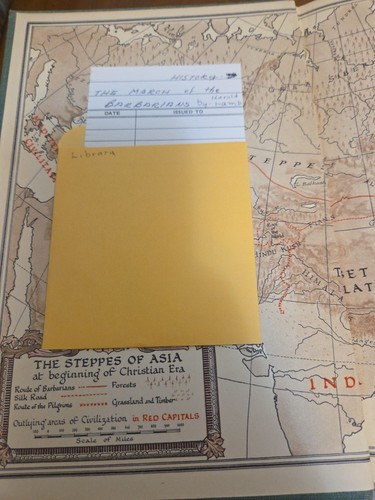 HISTORY:
THE MARCH of the
BARBARIANS by: Harold Lamb
DATE ISSUED TO
Library
STEPPE
L. Balkash
HINDU KUSH
HIMALA
TIBET
PLAT
IND
THE STEPPES OF ASIA
at beginning of Christian Era
Route of Barbarians Forests
Silk Road
Route of the Pilgrims Grassland and Timber
Outlying areas of Civilization in RED CAPITALS
Scale of Miles